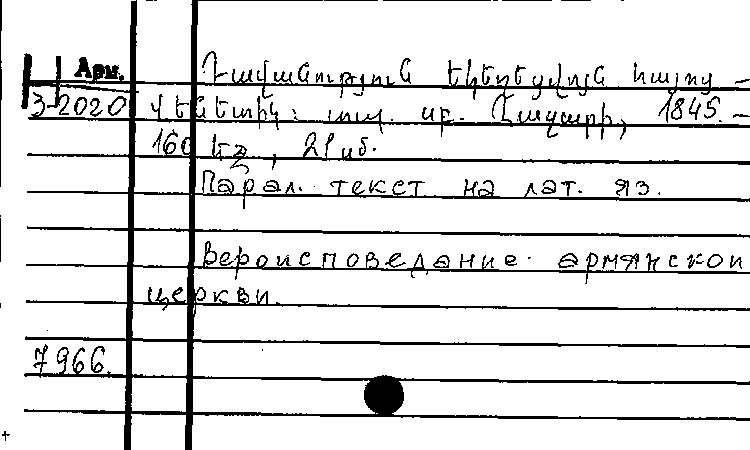 Арм.
Դավանություն եկեղեցվույն հայոց –
3-2020 Վենետիկ: տպ. սբ. Ղազարի, 1845. –
160 եջ, 21 սմ.
Парал. текст на лат. яз.
Вероисповедание армянской
церкви.
7966.